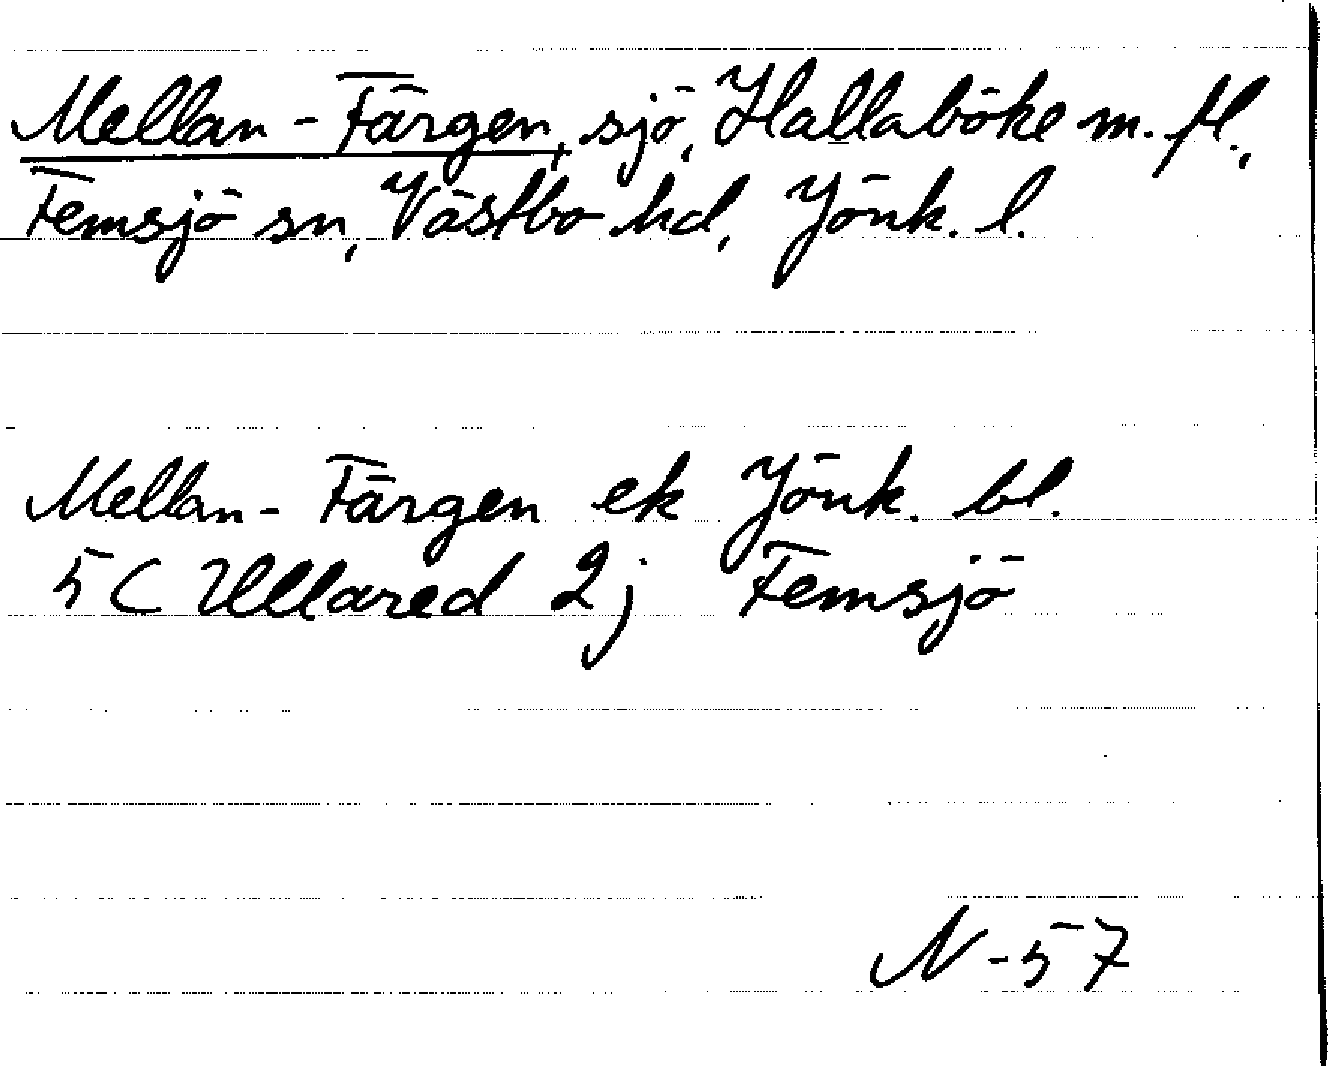 Mellan-Färgen, sjö, Hallaböke m. fl.,
Femsjö sn, Västbo hd, Jönk. l.
Mellan-Färgen ek Jönk. bl.
5C Ullared 2j Femsjö
N-57